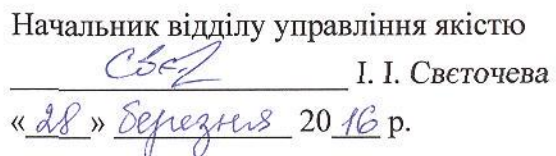 Начальник відділу управління якістю
І. І. Свєточева
«28» березня 2016 р.